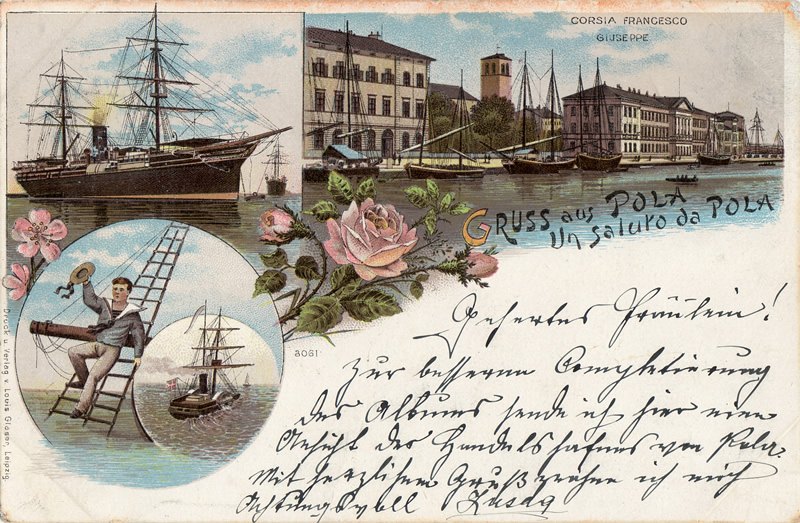 CORSIA FRANCESCO
GIUSEPPE
GRUSS aus POLA
Un saluto da POLA
3061
Druck u. Verlag v. Louis Glaser, Leipzig.
Geehrtes Fräulein!
Zur besseren Completierung
des Albums sende ich hier eine
Ansicht des Handelshafens von Pola.
Mit herzlichem Gruß ich mich
Achtungsvoll